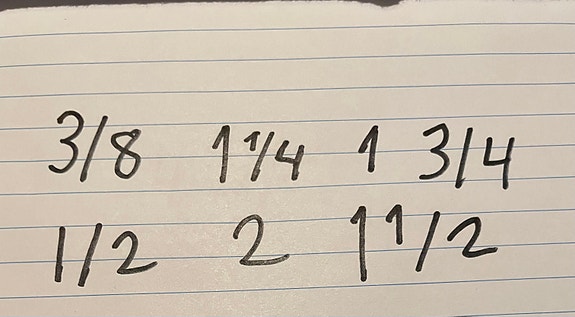 3/8 1 1/4 1 3/4
1/2 2 1 1/2